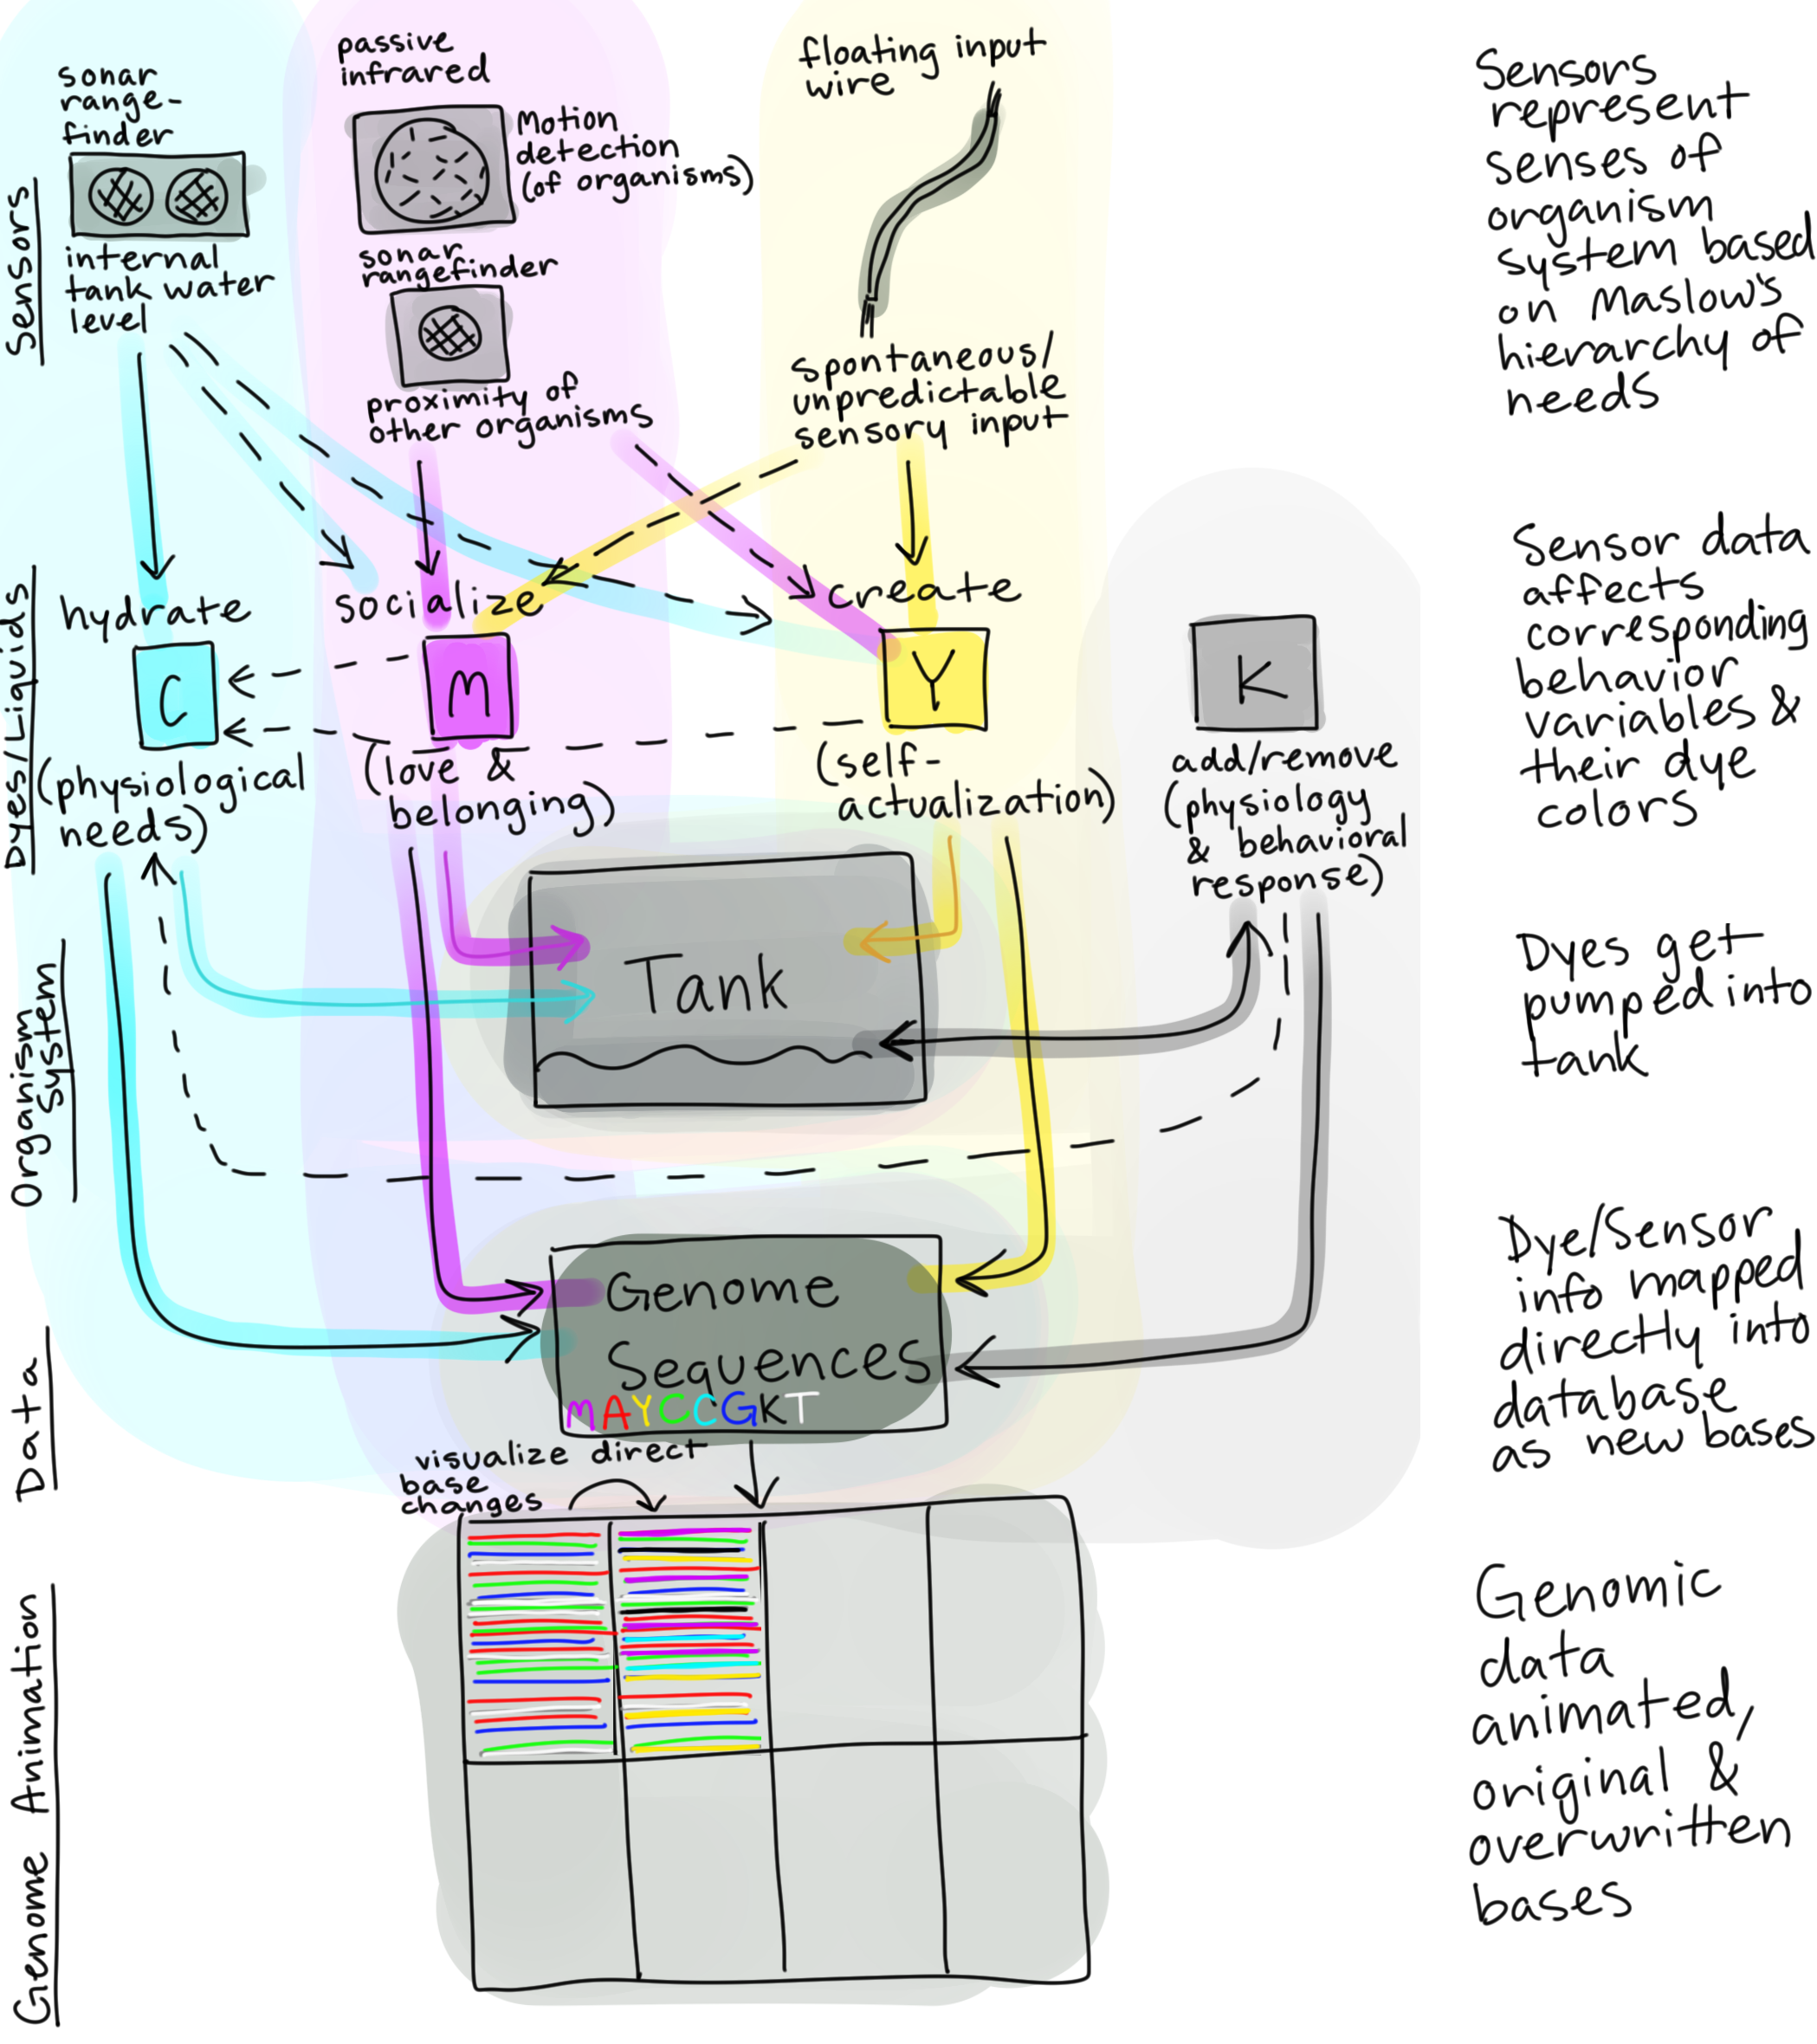 Sensors
sonar
range-
finder
internal
tank water
level
passive
infrared
Motion
detection
(of organisms)
sonar
rangefinder
proximity of
other organisms
floating input
wire
Spontaneous/
unpredictable
sensory input
Sensors
represent
senses of
organism
system based
on Maslow's
hierarchy of
needs
Dyes/Liquids
hydrate
C
(physiological
needs)
socialize
M
(love &
belonging)
create
Y
(self-
actualization)
K
add/remove
(physiology
& behavioral
response)
Sensor data
affects
corresponding
behavior
variables &
their dye
colors
Organism
System
Tank
Dyes get
pumped into
tank
Data
Genome
Sequences
MAYCCGKT
Dye/Sensor
info mapped
directly into
database
as new bases
Genome Animation
visualize direct
base
changes
Genomic
data
animated,
original &
overwritten
bases